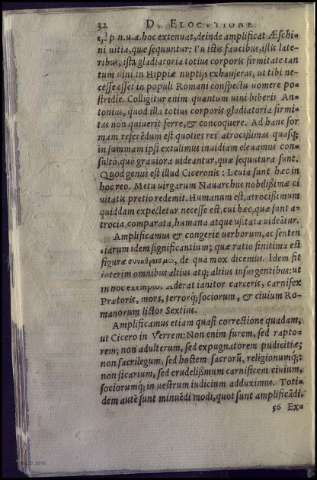 32 DE ELOCVTIONE
hoc extenuat, deinde amplificat Æschi
ni uitia, quæ sequuntur: Tu istis faucibus, istis late-
ribus, ista gladiatoria totius corporis firmitate tan
tum uini in Hippiæ nuptijs exhauseras, ut tibi ne-
cesse esset in populi Romani conspectu uomere po-
stridie. Colligitur enim quantum uini biberit An-
tonius, quod illa totius corporis gladiatoria firmi-
tas non quiuerit ferre, & concoquere. Ad hanc for
mam referēdum est quoties res atrocissimas quasq;
in summam ipsi extulimus inuidiam eleuamus con-
sulto, quò grauiora uideantur, quæ sequutura sunt.
Quod genus est illud Ciceronis: Leuia sunt hæc in
hoc reo. Metū uirgarum Nauarchus nobilissimæ ci
uitatis pretio redemit. Humanum est, atrocissimum
quiddam expectetur necesse est, cui hæc, quæ sunt a-
trocia, comparata, humana atque usitata uideātur.
Amplificamus & congerie uerborum, ac senten
tiarum idem significantium; quæ ratio finitima est
figuræ συναθροισμῷ, de qua mox dicemus. Idem fit
interim omnibus altius atq; altius insurgentibus: ut
in hoc exemplo. Aderat ianitor carceris, carnifex
Prætoris, mors, terrorq; sociorum, & ciuium Ro-
manorum lictor Sextius.
Amplificamus etiam quasi correctione quadam,
ut Cicero in Verrem: Non enim furem, sed rapto-
rem; non adulterum, sed expugnatorem pudicitiæ;
non sacrilegum, sed hostem sacrorū, religionumq;;
non sicarium, sed crudelissimum carnificem ciuium,
sociorumq; in uestrum iudicium adduximus. Toti-
dem autē sunt minuēdi modi, quot sunt amplificādi.
56 Exa